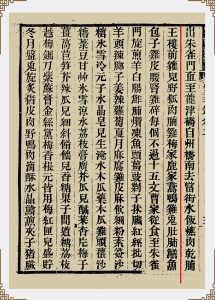 出朱雀門直至龍津橋自州橋南去當街水飯爊肉乾脯
王樓前獾兒野狐肉脯雞梅家鹿家鵝鴨雞兔肚肺鱔魚
包子雞皮腰腎雞碎每個不過十五文曹家從食至朱雀
門旋煎羊白腸鮓脯凍魚頭薑豉子抹臟紅絲批切
羊頭辣脚子薑辣蘿蔔夏月麻腐雞皮麻飲細粉素簽沙
糖冰雪冷元子水晶皂兒生淹水木瓜藥木瓜雞頭穰沙
糖菉豆甘草冰雪涼水荔枝膏廣芥瓜兒醎菜杏片梅子
薑萵苣笋芥辣瓜兒細料餶飿兒香糖果子間道糖荔枝
越梅鋸刀紫蘇膏金絲黨梅香棖元皆用梅紅匣兒盛貯
冬月盤兔旋炙猪皮肉野鴨肉滴酥水晶鱠煎夾子猪臟